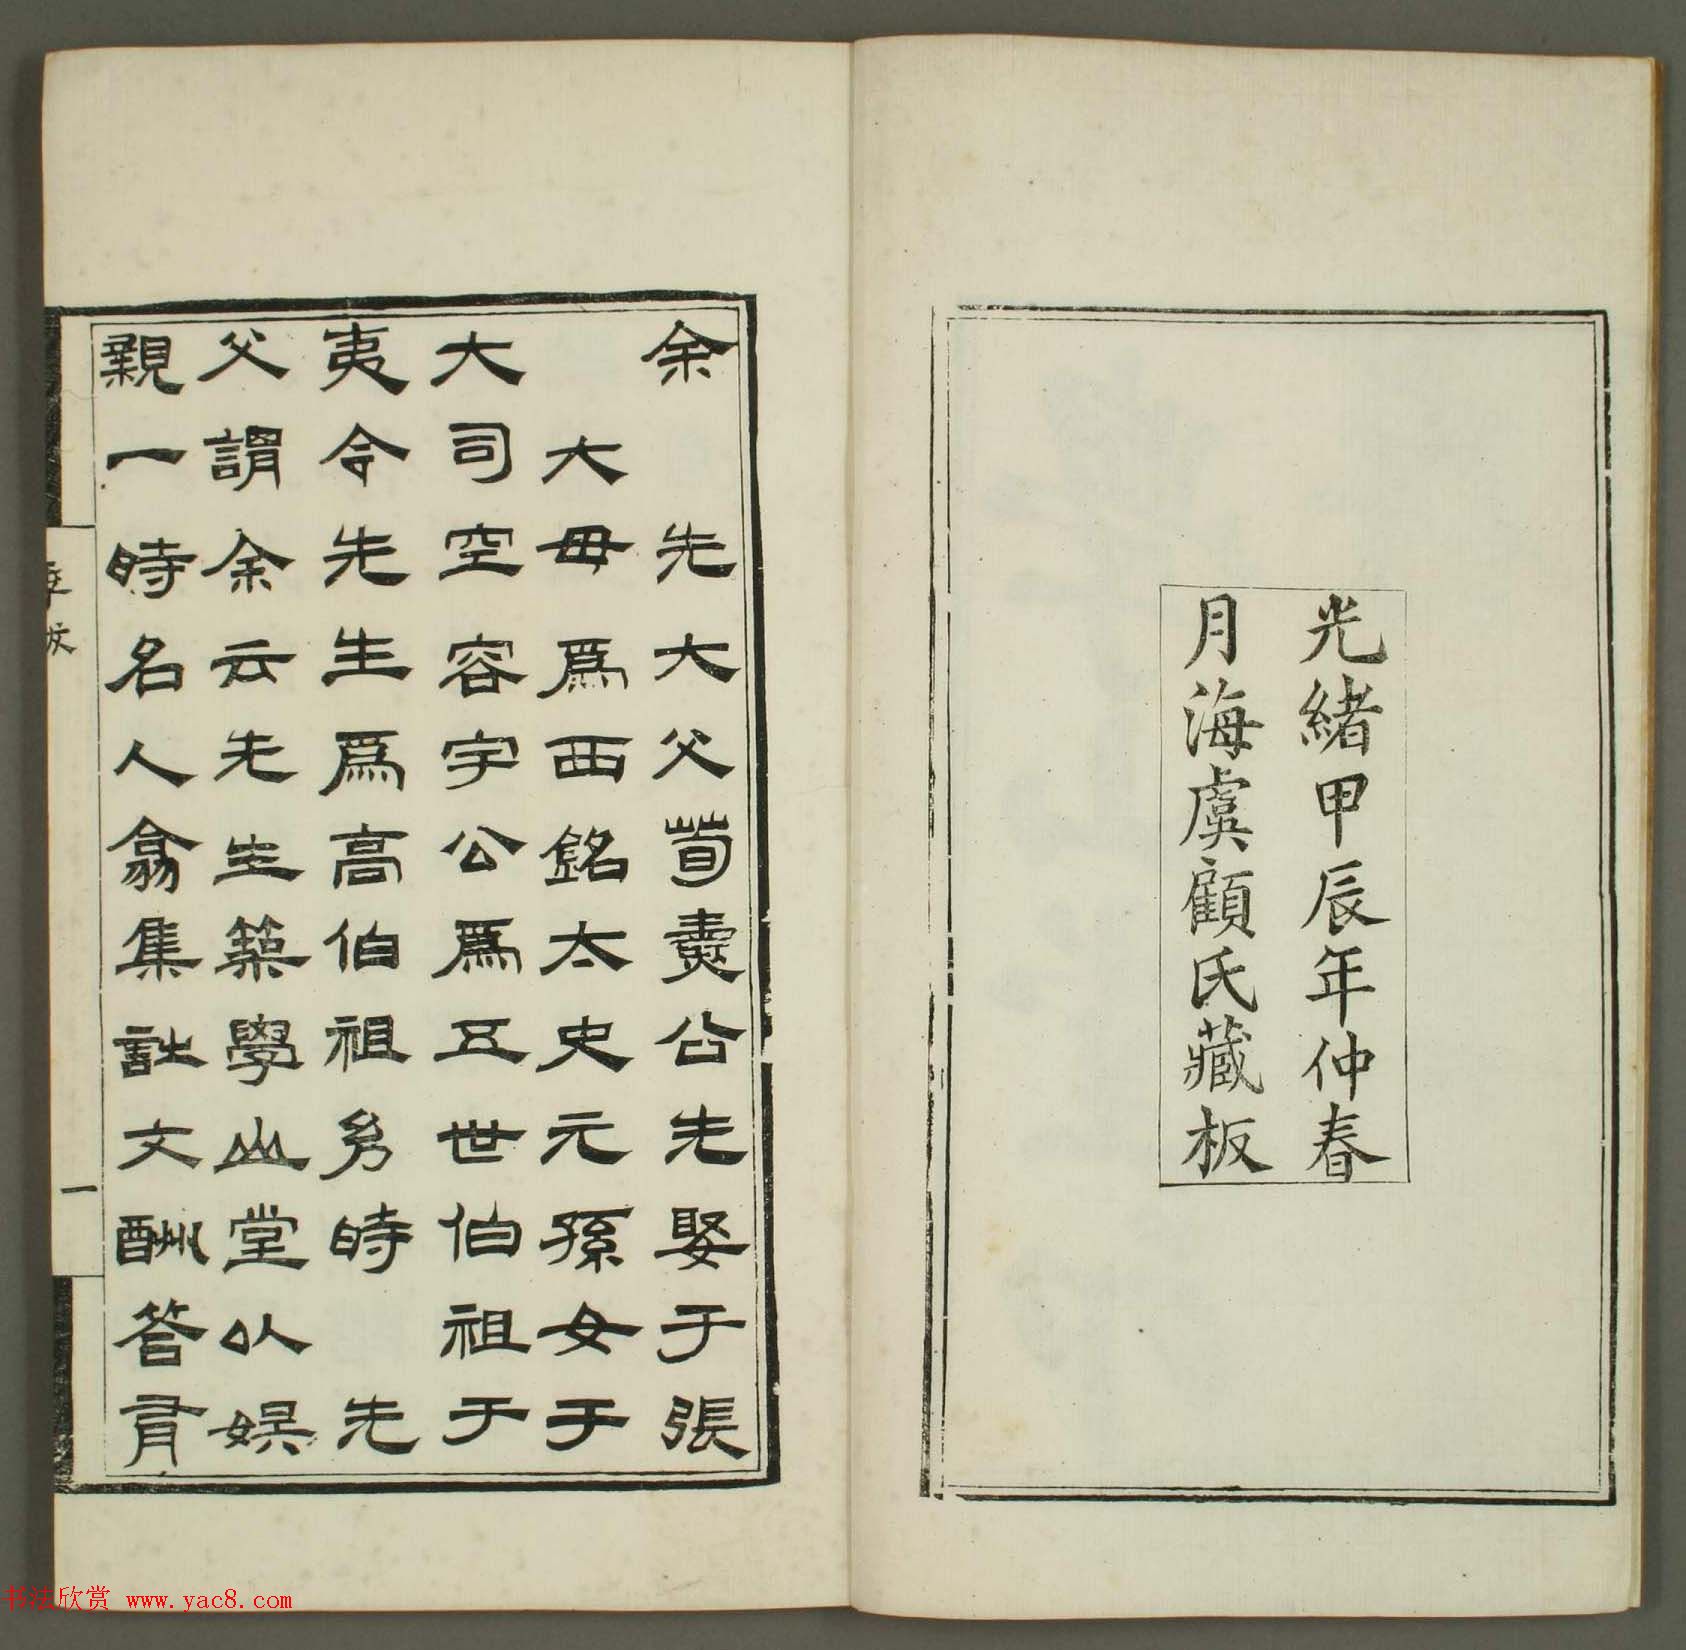 光緒甲辰年仲春
月海虞顧氏藏板
余 先大父荀公先娶于張
大母爲西銘太史元孫女于
大司空容宇公爲五世伯祖于
夷令先生爲高伯祖幼時 先
父謂余云先生築學山堂以娛
親一時名人翕集詩文酬答有
一
书法欣赏 www.yac8.com